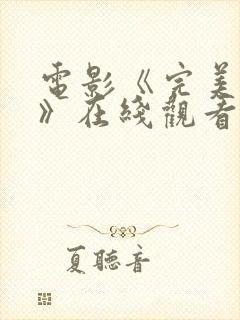 電影《完美
》在綫觀看
夏聽音